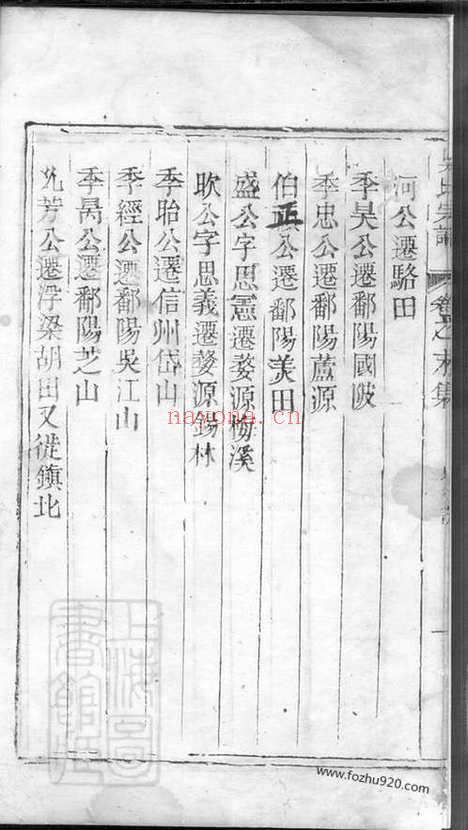 河公遷駱田
季昊公遷鄱陽國陂
季忠公遷鄱陽蘆源
伯正公遷鄱陽美田
盛公字思憲遷婺源梅溪
歆公字思義遷婺源錫林
季胎公遷信州岱山
季經公遷鄱陽吳江山
季昺公遷鄱陽芝山
允芳公遷浮梁胡田又從鎮北
氏宗譜 卷之末集
nayona.cn
上海圖書館藏
www.fozhu920.com